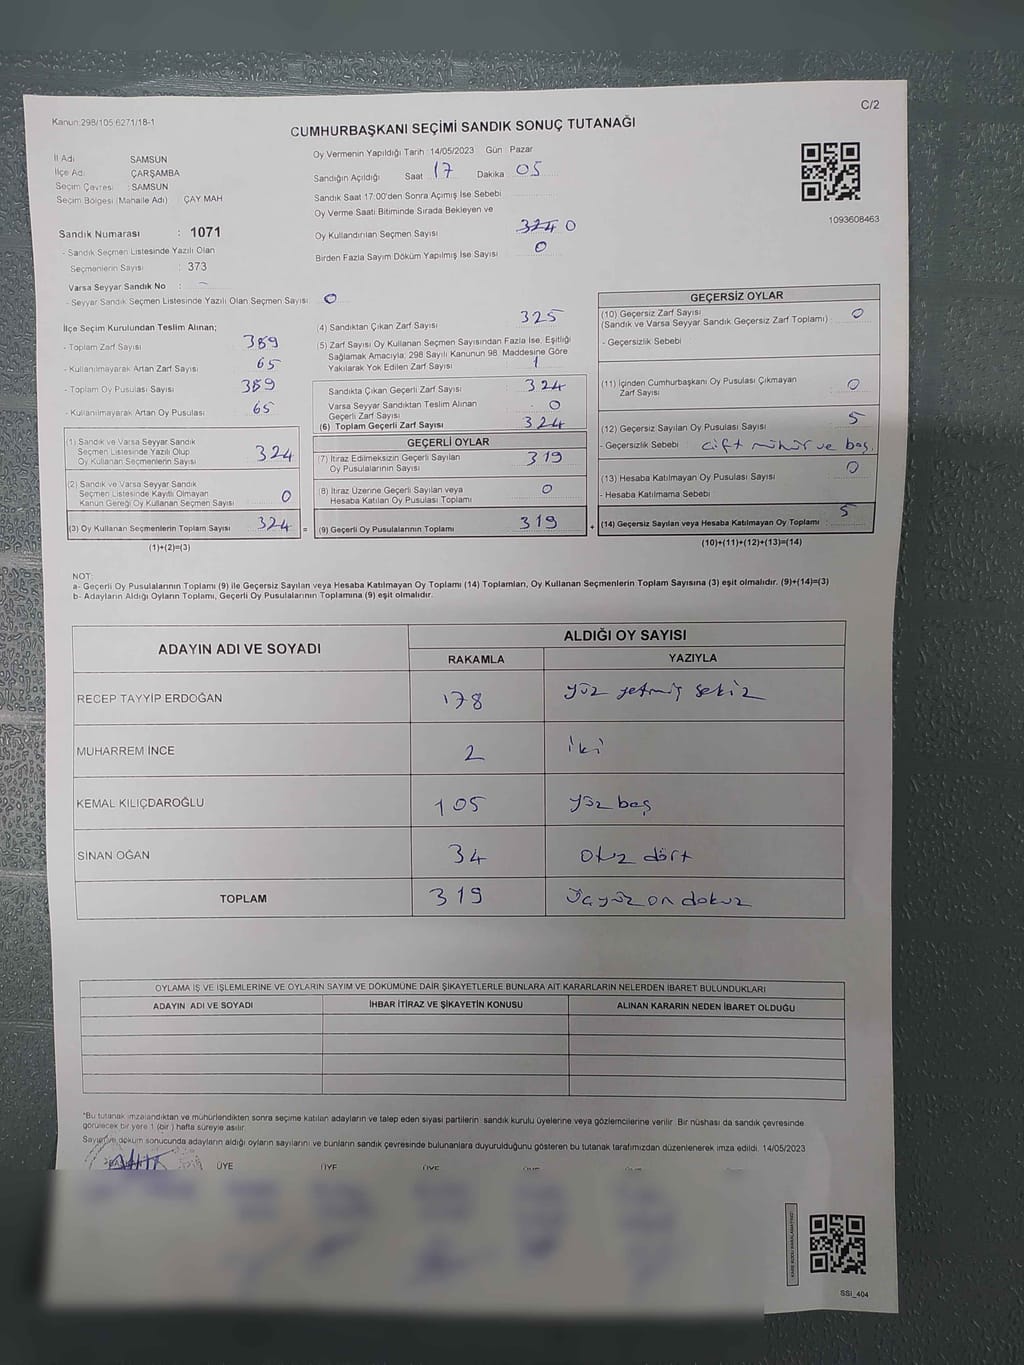 C/2
Kanun:298/105 6271/18-1
CUMHURBAŞKANI SEÇİMİ SANDIK SONUÇ TUTANAĞI
İl Adı SAMSUN
İlçe Adı ÇARŞAMBA
Seçim Çevresi : SAMSUN
Seçim Bölgesi (Mahalle Adı) ÇAY MAH
Sandık Numarası : 1071
- Sandık Seçmen Listesinde Yazılı Olan
Seçmenlerin Sayısı : 373
Varsa Seyyar Sandık No : -
- Seyyar Sandık Seçmen Listesinde Yazılı Olan Seçmen Sayısı 0
Oy Vermenin Yapıldığı Tarih :14/05/2023 Gün Pazar
Sandığın Açıldığı Saat 17 Dakika 05
Sandık Saat 17:00'den Sonra Açımış İse Sebebi
Oy Verme Saati Bitiminde Sırada Bekleyen ve
Oy Kullandırılan Seçmen Sayısı 324 0
Birden Fazla Sayım Döküm Yapılmış İse Sayısı 0
1093608463
İlçe Seçim Kurulundan Teslim Alınan;
- Toplam Zarf Sayısı 389
- Kullanılmayarak Artan Zarf Sayısı 65
- Toplam Oy Pusulası Sayısı 389
- Kullanılmayarak Artan Oy Pusulası 65
(1) Sandık ve Varsa Seyyar Sandık
Seçmen Listesinde Yazılı Olup
Oy Kullanan Seçmenlerin Sayısı 324
(2) Sandık ve Varsa Seyyar Sandık
Seçmen Listesinde Kayıtlı Olmayan
Kanun Gereği Oy Kullanan Seçmen Sayısı 0
(3) Oy Kullanan Seçmenlerin Toplam Sayısı 324 =
(1)+(2)=(3)
(4) Sandıktan Çıkan Zarf Sayısı 325
(5) Zarf Sayısı Oy Kullanan Seçmen Sayısından Fazla İse, Eşitliği
Sağlamak Amacıyla; 298 Sayılı Kanunun 98. Maddesine Göre
Yakılarak Yok Edilen Zarf Sayısı 1
Sandıkta Çıkan Geçerli Zarf Sayısı 324
Varsa Seyyar Sandıktan Teslim Alınan
Geçerli Zarf Sayısı 0
(6) Toplam Geçerli Zarf Sayısı 324
GEÇERLİ OYLAR
(7) İtiraz Edilmeksizin Geçerli Sayılan
Oy Pusulalarının Sayısı 319
(8) İtiraz Üzerine Geçerli Sayılan veya
Hesaba Katılan Oy Pusulası Toplamı 0
(9) Geçerli Oy Pusulalarının Toplamı 319 +
GEÇERSİZ OYLAR
(10) Geçersiz Zarf Sayısı
(Sandık ve Varsa Seyyar Sandık Geçersiz Zarf Toplamı) 0
- Geçersizlik Sebebi
(11) İçinden Cumhurbaşkanı Oy Pusulası Çıkmayan
Zarf Sayısı 0
(12) Geçersiz Sayılan Oy Pusulası Sayısı 5
- Geçersizlik Sebebi çift mühür ve boş.
(13) Hesaba Katılmayan Oy Pusulası Sayısı 0
- Hesaba Katılmama Sebebi
(14) Geçersiz Sayılan veya Hesaba Katılmayan Oy Toplamı 5
(10)+(11)+(12)+(13)=(14)
NOT:
a- Geçerli Oy Pusulalarının Toplamı (9) ile Geçersiz Sayılan veya Hesaba Katılmayan Oy Toplamı (14) Toplamları, Oy Kullanan Seçmenlerin Toplam Sayısına (3) eşit olmalıdır. (9)+(14)=(3)
b- Adayların Aldığı Oyların Toplamı, Geçerli Oy Pusulalarının Toplamına (9) eşit olmalıdır.
ADAYIN ADI VE SOYADI ALDIĞI OY SAYISI
RAKAMLA YAZIYLA
RECEP TAYYİP ERDOĞAN 178 yüz yetmiş sekiz
MUHARREM İNCE 2 iki
KEMAL KILIÇDAROĞLU 105 yüz beş
SİNAN OĞAN 34 otuz dört
TOPLAM 319 üçyüz on dokuz
OYLAMA İŞ VE İŞLEMLERİNE VE OYLARIN SAYIM VE DÖKÜMÜNE DAİR ŞİKAYETLERLE BUNLARA AİT KARARLARIN NELERDEN İBARET BULUNDUKLARI
ADAYIN ADI VE SOYADI İHBAR İTİRAZ VE ŞİKAYETİN KONUSU ALINAN KARARIN NEDEN İBARET OLDUĞU
*Bu tutanak imzalandıktan ve mühürlendikten sonra seçime katılan adayların ve talep eden siyasi partilerin sandık kurulu üyelerine veya gözlemcilerine verilir. Bir nüshası da sandık çevresinde
görülecek bir yere 1 (bir ) hafta süreyle asılır.
Sayım ve döküm sonucunda adayların aldığı oyların sayılarını ve bunların sandık çevresinde bulunanlara duyurulduğunu gösteren bu tutanak tarafımızdan düzenlenerek imza edildi. 14/05/2023
ÜYE ÜYE ÜYE
SSİ_404